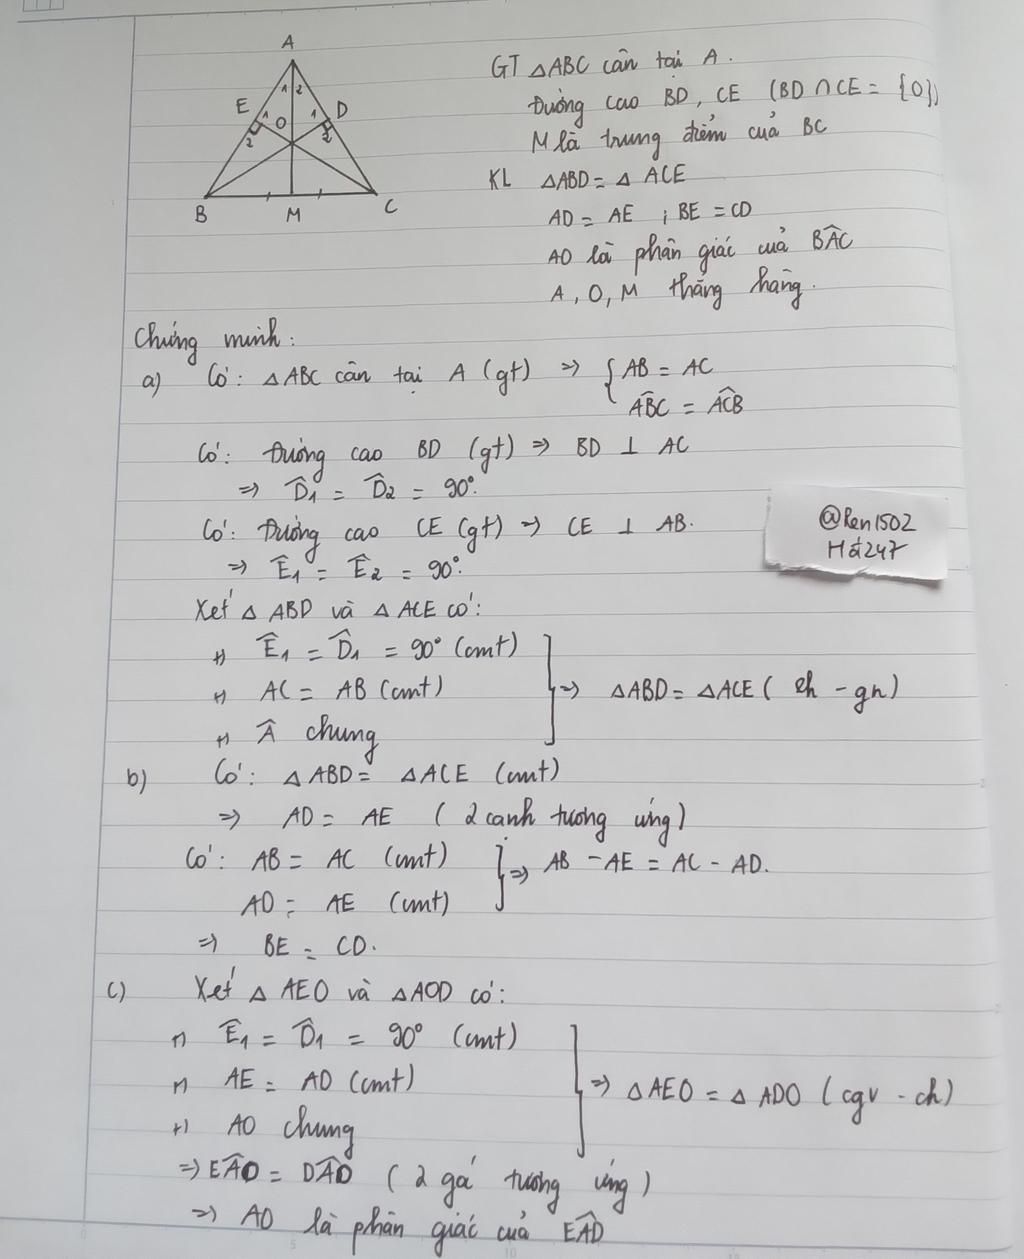 A
E
D
1
2
1
1
O
2
2
B
M
C
GT △ABC cân tại A.
Đường cao BD, CE (BD ∩ CE = {O})
M là trung điểm cuả BC
KL △ABD = △ ACE
AD = AE ; BE = CD
AO là phân giác cuả BÂC
A, O, M thẳng hàng.
Chứng minh:
a) Có: △ABC cân tại A (gt) => { AB = AC
ABC^ = ACB^
Có: Đường cao BD (gt) => BD ⊥ AC
=> D̂1 = D̂2 = 90°.
Có: Đường cao CE (gt) => CE ⊥ AB.
=> Ê1 = Ê2 = 90°.
@Ren1502
H̶á247
Xét △ ABD và △ ACE có:
+) Ê1 = D̂1 = 90° (cmt)
+) AC = AB (cmt)
=> △ABD = △ACE ( ch - gn)
+) Â chung
b) Có: △ ABD = △ACE (cmt)
=> AD = AE ( 2 cạnh tương ứng)
Có: AB = AC (cmt)
=> AB - AE = AC - AD.
AD = AE (cmt)
=> BE = CD.
c) Xét △ AEO và △AOD có:
+) Ê1 = D̂1 = 90° (cmt)
+) AE = AD (cmt)
=> △AEO = △ ADO (cgv - ch)
+) AO chung
=> EÂO = DÂO ( 2 gá tương ứng)
=> AO là phân giác cuả EÂD